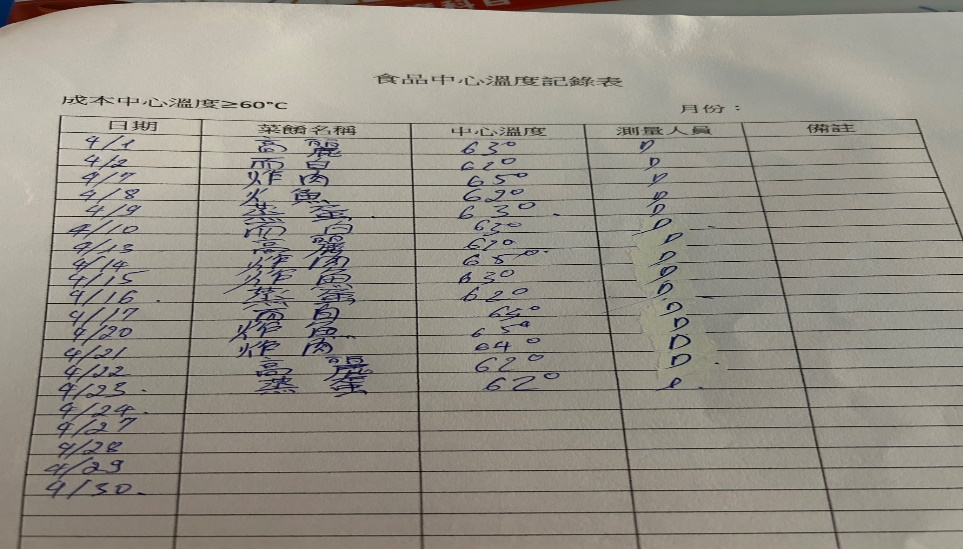 食品中心溫度記錄表
成本中心溫度≥60°C 月份：
日期 菜餚名稱 中心溫度 測量人員 備註
4/1 高麗 63° D
4/2 而白 62° D
4/7 炸肉 65° D
4/8 火魚 62° D
4/9 蒸蛋 63° D
4/10 而白 63° D
4/13 高麗 62° D
4/14 炸肉 65° D
4/15 炸魚 63° D
4/16 蒸蛋 62° D
4/17 而白 63° D
4/20 炸魚 65° D
4/21 炸肉 64° D
4/22 高麗 62° D
4/23 蒸蛋 62°
4/24
4/27
4/28
4/29
4/30